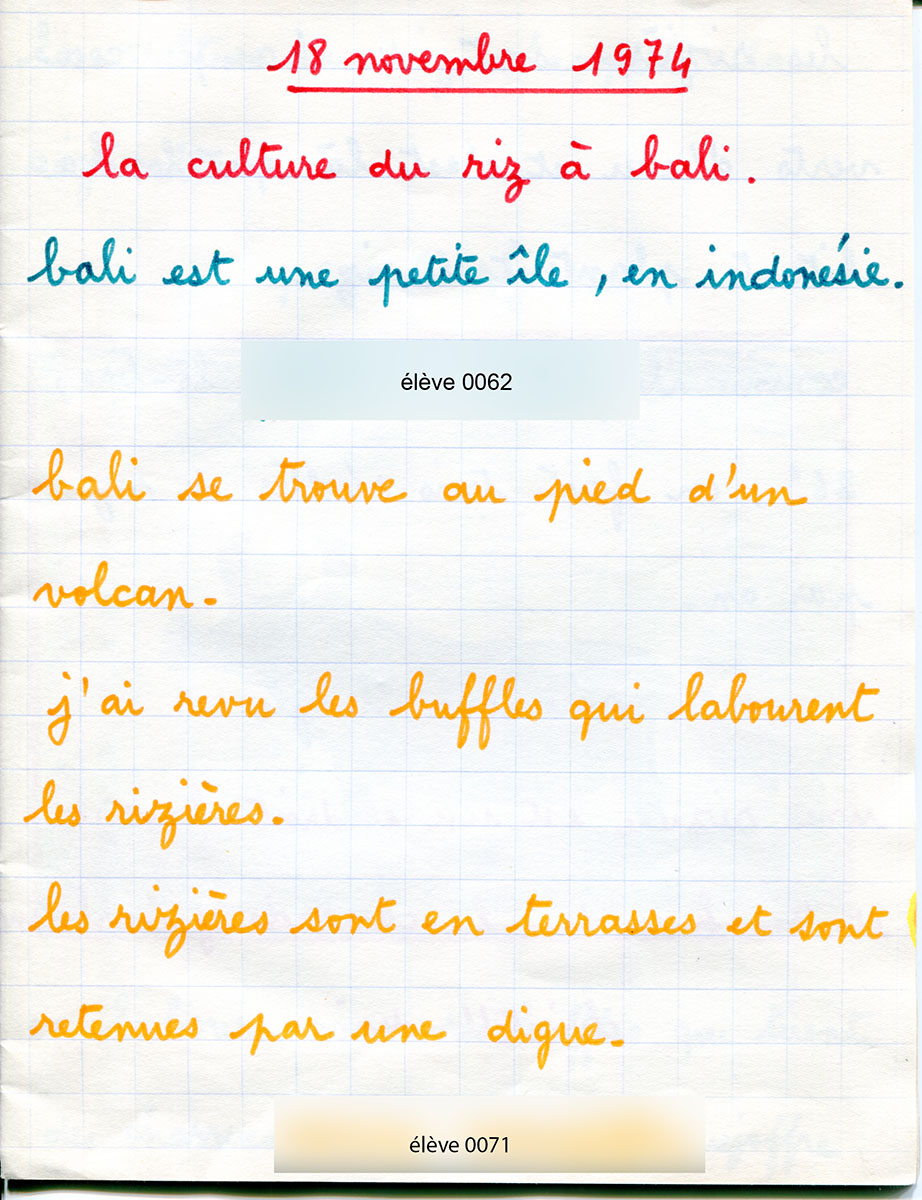 18 novembre 1974
la culture du riz à bali.
bali est une petite île, en indonésie.
élève 0062
bali se trouve au pied d'un
volcan.
j'ai revu les buffles qui labourent
les rizières.
les rizières sont en terrasses et sont
retenues par une digue.
élève 0071